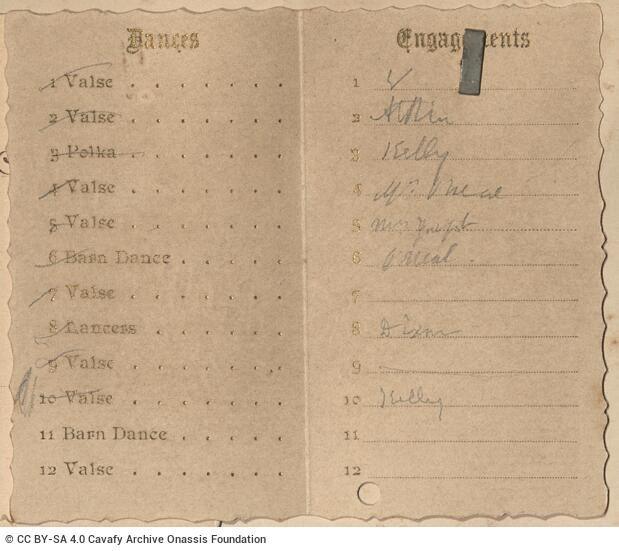 Dances
1 Valse
2 Valse
3 Polka
4 Valse
5 Valse
6 Barn Dance
7 Valse
8 Lancers
9 Valse
10 Valse
11 Barn Dance
12 Valse
Engagements
1
2
3 Kelly
4 Mr
5 Mrs
6 O'Neal
7
8 Dixon
9
10 Kelly
11
12
© CC BY-SA 4.0 Cavafy Archive Onassis Foundation